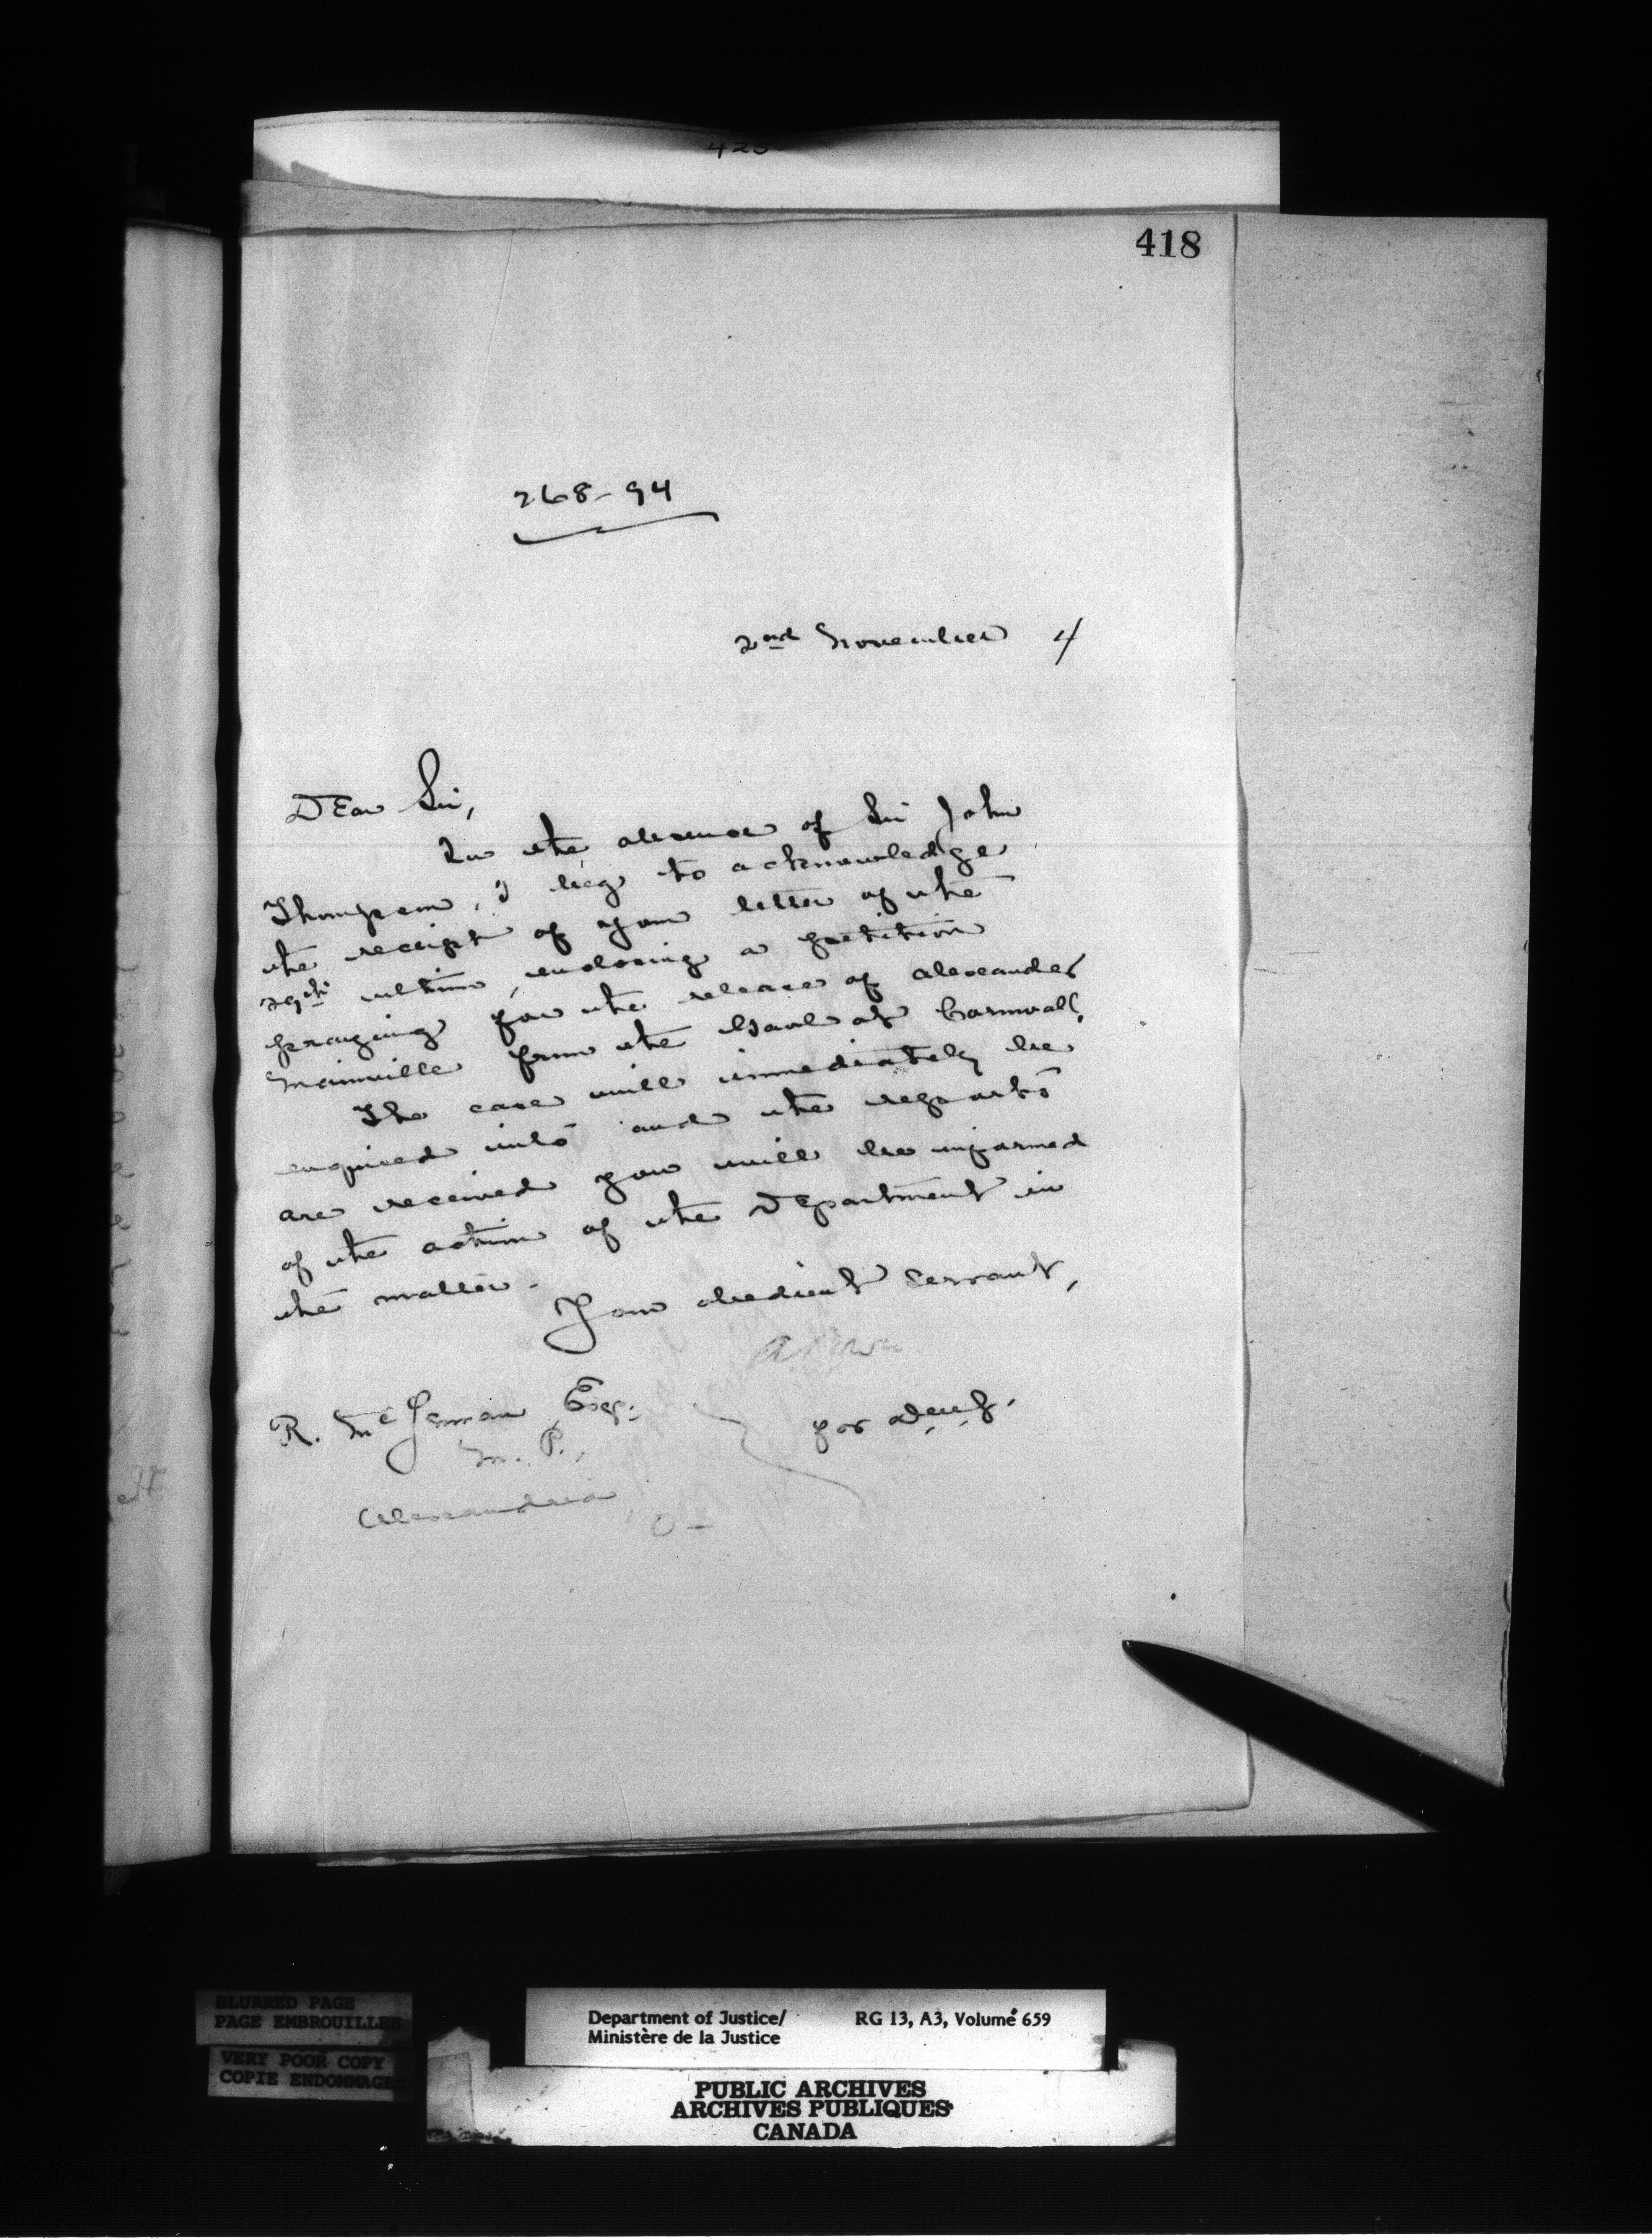 418
268-94
2nd November 4/
Dear Sir,
In the absence of Sir John
Thompson, I beg to acknowledge
the receipt of your letter of the
29th ultimo, enclosing a petition
praying for the release of Alexander
Mainville from the Gaol at Cornwall.
The case will immediately be
enquired into and the reports
are received you will be informed
of the action of the Department in
the matter.
Your obedient Servant,
for D.M.J.
R. McLennan Esq.
M. P.,
Alexandria, O-
BLURRED PAGE
PAGE EMBROUILLEE
VERY POOR COPY
COPIE ENDOMMAGE
Department of Justice/ RG 13, A3, Volume 659
Ministère de la Justice
PUBLIC ARCHIVES
ARCHIVES PUBLIQUES
CANADA